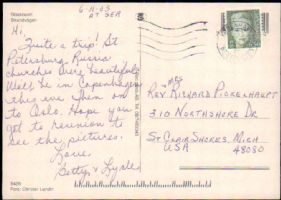 6-11-03
AT SEA
Hi,
Quite a trip! St
Petersburg Russia
churches were beautiful
Well be in Copenhagen
this eve then on
to Oslo. Hope you
get to reunion to
see the pictures.
Love
Betty & Lyle
Foto: Christer Lundin
Rev & Mrs Richard Pickenhaupt
310 Northshore Dr.
St Clair Shores, Mich
USA 48080